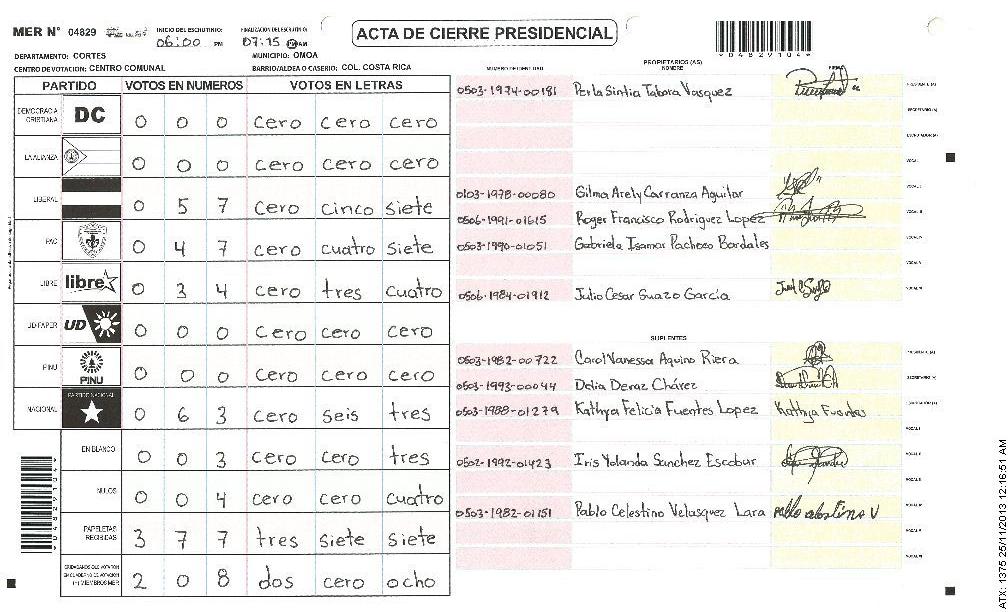 MER N° 04829 INICIO DEL ESCRUTINIO: 06:00 PM FINALIZACION ESCRUTINIO: 07:15 PM AM
ACTA DE CIERRE PRESIDENCIAL
*04829104*
DEPARTAMENTO: CORTES MUNICIPIO: OMOA
CENTRO DE VOTACION: CENTRO COMUNAL BARRIO/ALDEA O CASERIO: COL. COSTA RICA
PARTIDO VOTOS EN NUMEROS VOTOS EN LETRAS
DEMOCRACIA CRISTIANA DC 0 0 0 cero cero cero
LA ALIANZA 0 0 0 cero cero cero
LIBERAL 0 5 7 cero cinco siete
PAC 0 4 7 cero cuatro siete
LIBRE libre 0 3 4 cero tres cuatro
UD FAPER UD 0 0 0 cero cero cero
PINU PINU 0 0 0 cero cero cero
NACIONAL PARTIDO NACIONAL 0 6 3 cero seis tres
EN BLANCO 0 0 3 cero cero tres
NULOS 0 0 4 cero cero cuatro
PAPELETAS RECIBIDAS 3 7 7 tres siete siete
CIUDADANOS QUE VOTARON EN CUADERNO DE VOTACION (+) MIEMBROS MER 2 0 8 dos cero ocho
NUMERO DE IDENTIDAD PROPIETARIOS (AS) NOMBRE FIRMA
0503-1974-00181 Perla Sintia Tabora Vasquez PRESIDENTE (A)
SECRETARIO (A)
ESCRUTADOR (A)
VOCAL I
0103-1978-00080 Gilma Arely Carranza Aguilar
0506-1991-01615 Roger Francisco Rodriguez Lopez
0503-1990-01051 Gabriela Isamar Pachozo Bardales
0506-1984-01912 Julio Cesar Suazo Garcia
SUPLENTES
0503-1982-00722 Carol Vanessa Aquino Riera PRESIDENTE (A)
0503-1993-00044 Delia Deraz Chárez SECRETARIO (A)
0503-1989-01279 Kathya Felicia Fuentes Lopez Kathya Fuentes ESCRUTADOR (A)
0502-1992-01423 Iris Yolanda Sanchez Escobar
0503-1982-01151 Pablo Celestino Velasquez Lara pablo celestino V
*04829104*
ATX: 1375 25/11/2013 12:16:51 AM